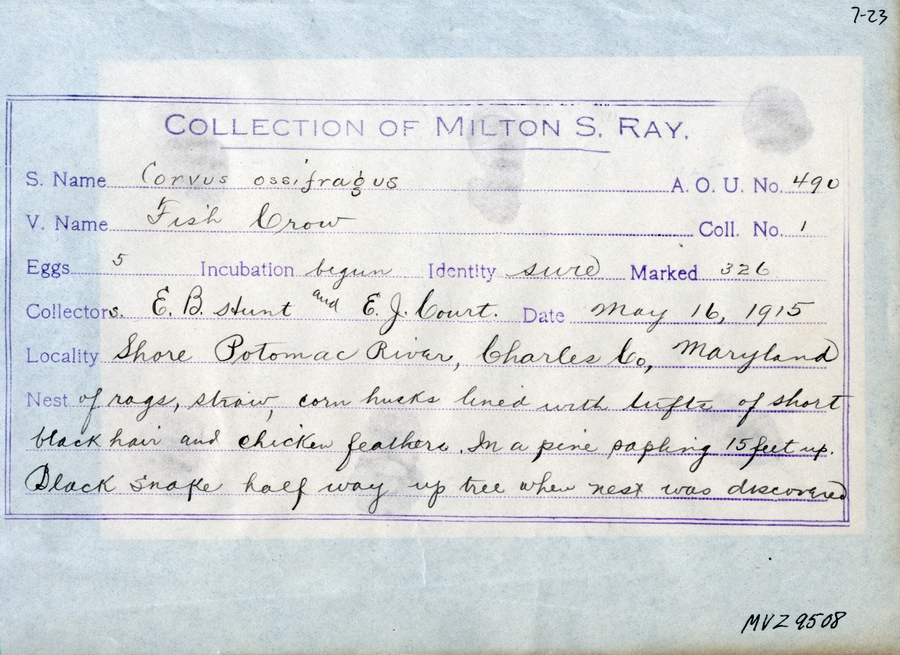 7-23
COLLECTION OF MILTON S. RAY.
S. Name Corvus ossifragus A. O. U. No. 490
V. Name Fish Crow Coll. No. 1
Eggs 5 Incubation begun Identity sure Marked 326
Collectors. E. B. Hunt and E. J. Court. Date May 16, 1915
Locality Shore Potomac River, Charles Co, Maryland
Nest of rags, straw, corn husks lined with tufts of short
black hair and chicken feathers. In a pine sapling 15 feet up.
Black snake half way up tree when nest was discovered
MVZ 9508